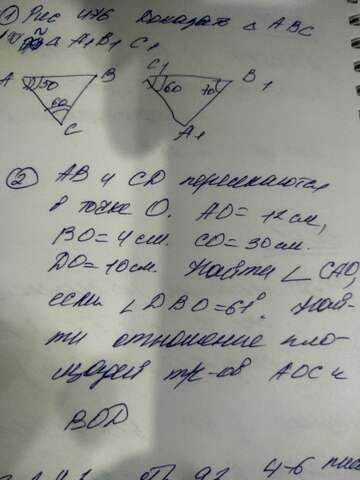 ① Рис 476 Доказать △ ABC
△ A₁B₁C₁
A 50 B
60
C
C₁ 60 70 B₁
A₁
② AB и CD пересекаются
в точке O. AO = 12 см,
BO = 4 см. CO = 30 см.
DO = 10 см. Найти ∠ CAO,
если ∠ DBO = 61°. Най-
ти отношение пло-
щадей тр-ов AOC и
BOD
4-6